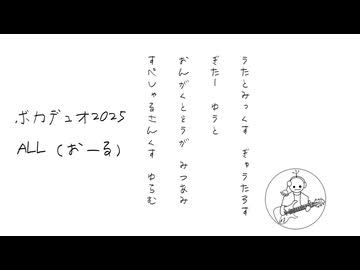 ボカデュオ2025
ALL (おーる)
うたとみっくす ぎゅうたろす
ぎたー ゆうと
おんがくとどうが みつあみ
すぺしゃるさんくす ゆらむ